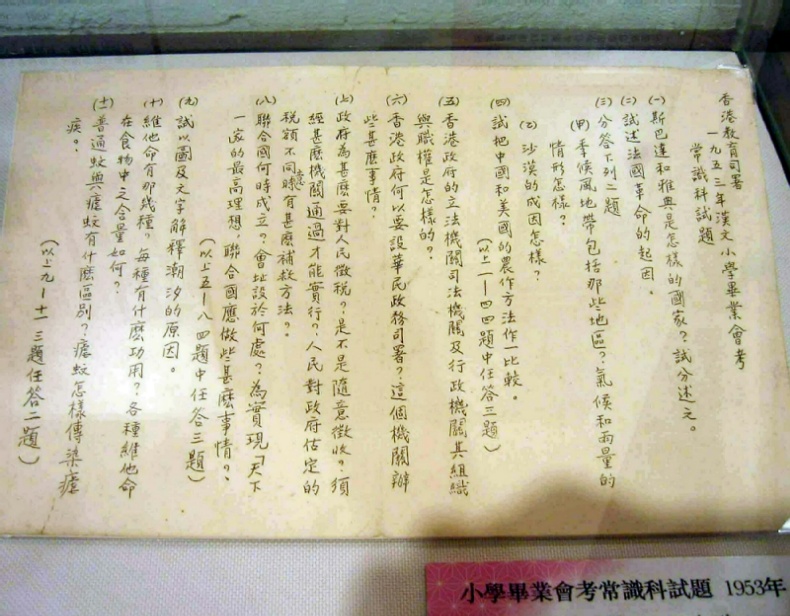 香港教育司署
一九五三年漢文小學畢業會考
常識科試題
(一) 斯巴達和雅典是怎樣的國家?試分述之。
(二) 試述法國革命的起因。
(三) 分答下列二題
(甲) 季候風地帶包括那些地區?氣候和雨量的
情形怎樣?
(乙) 沙漠的成因怎樣?
(四) 試把中國和美國的農作方法作一比較。
(以上一—四四題中任答三題)
(五) 香港政府的立法機關司法機關及行政機關其組織
與職權是怎樣的?
(六) 香港政府何以要設華民政務司署?這個機關辦
些甚麽事情?
(七) 政府為甚麽要對人民徵稅?是不是隨意徵收?須
經甚麽機關通過才能實行?人民對政府估定的
稅額不同意時有甚麽補救方法?
(八) 聯合國何時成立?會址設於何處?為實現「天下
一家」的最高理想,聯合國應做些甚麽事情?
(以上五—八四題中任答三題)
(九) 試以圖及文字解釋潮汐的原因。
(十) 維他命有那幾種?每種有什麽功用?各種維他命
在食物中之含量如何?
(十一) 普通蚊與瘧蚊有什麽區別?瘧蚊怎樣傳染瘧
疾?
(以上九—十一三題任答二題)
小學畢業會考常識科試題 1953年